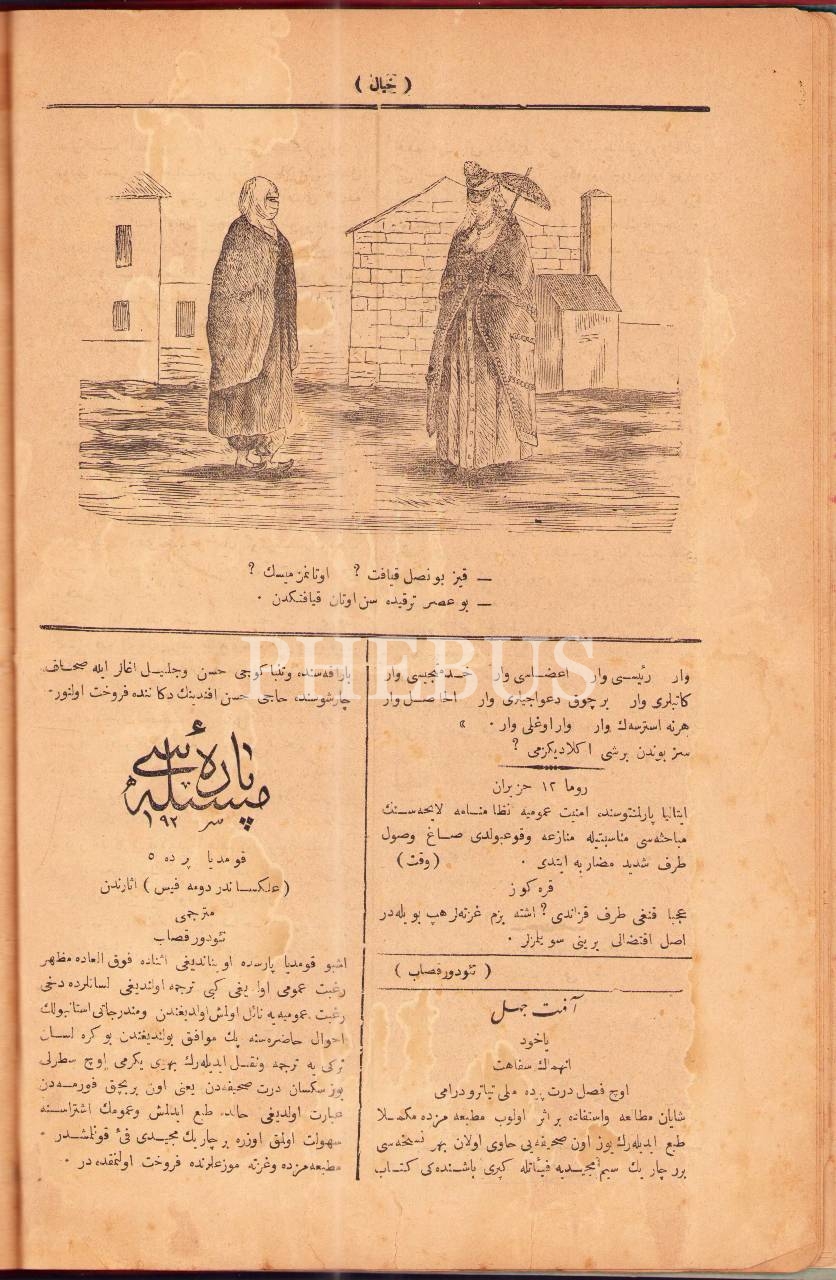 ( خیال )
— قیز بو نصل قیافت ؟ اوتانمز میسك ؟
— بو عصر ترقیده سن اوتان قیافتكدن .
PHEBUS
وار رئیسی وار اعضاسی وار خدمتجیسی وار
كاتبلری وار بر چوق دعواجیلری وار الحاصل وار
هر نه استرسه ك وار وار اوغلی وار . »
سز بوندن برشی اكلادیكزمی ؟
روما ١٢ حزیران
ایتالیا پارلمنتوسنده امنیت عمومیه نظامنامه لایحه سنك
مباحثه سی مناسبتیله منازعه وقوعبولدی صاغ وصول
طرف شدید مضاربه ایتدی . ( وقت )
قره كوز
عجبا قنغی طرف قزاندی ؟ اشته بزم غزته لر هپ بویله در
اصل اقتضالی یرینی سویلزلر .
( تئودور قصاب )
آفت جهل
یاخود
انهماك سفاهت
اوچ فصل درت پرده ملی تیاترو درامی
شایان مطالعه واستفاده بر اثر اولوب مطبعه مزده مكملا
طبع ایدیله رك یوز اون صحیفه یی حاوی اولان بهر نسخه سی
برر چاریك سیم مجیدیه فیئاتله كپری باشنده كی كتاب
بارافه سنده وتنباكوجی حسن وجلیل اغالر ایله صحاف
چارشوسنده حاجی حسن افندینك دكاننده فروخت اولنور .
پاره مسئله سی
قومدیا پرده ٥
( علكساندر دومه فیس ) آثارندن
مترجمی
تئودور قصاب
اشبو قومدیا پارسده اوینادیغی اثناده فوق العاده مظهر
رغبت عمومی اولدیغی كبی ترجمه اولندیغی لسانلرده دخی
رغبت عمومیه یه نائل اولمش اولدیغندن ومندرجاتی استانبولك
احوال حاضره سنه پك موافق بولندیغندن بو كره لسان
تركی یه ترجمه ونقل ایدیله رك بهری یكرمی اوچ سطرلی
یوز سكسان درت صحیفه دن یعنی اون بر بچق فورمه دن
عبارت اولدیغی حالده طبع ایدلمش وعمومك اشتراسنه
سهولت اولمق اوزره بر چاریك مجیدی فئ قونلمشدر .
مطبعه مزده وغزته موزعلرنده فروخت اولنمقده در .